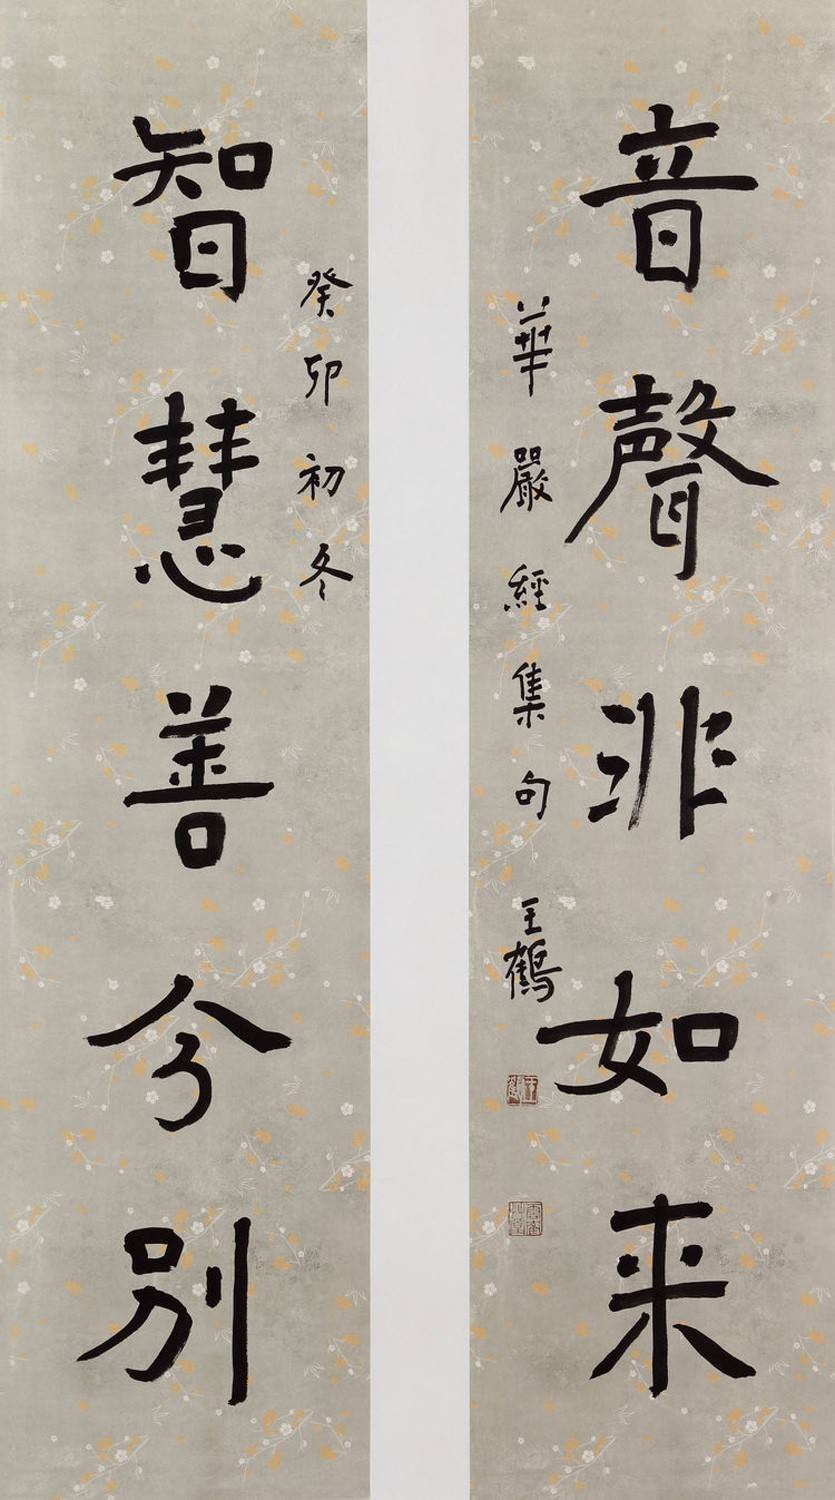 音聲非如来
華嚴經集句
王鶴
智慧善分别
癸卯初冬